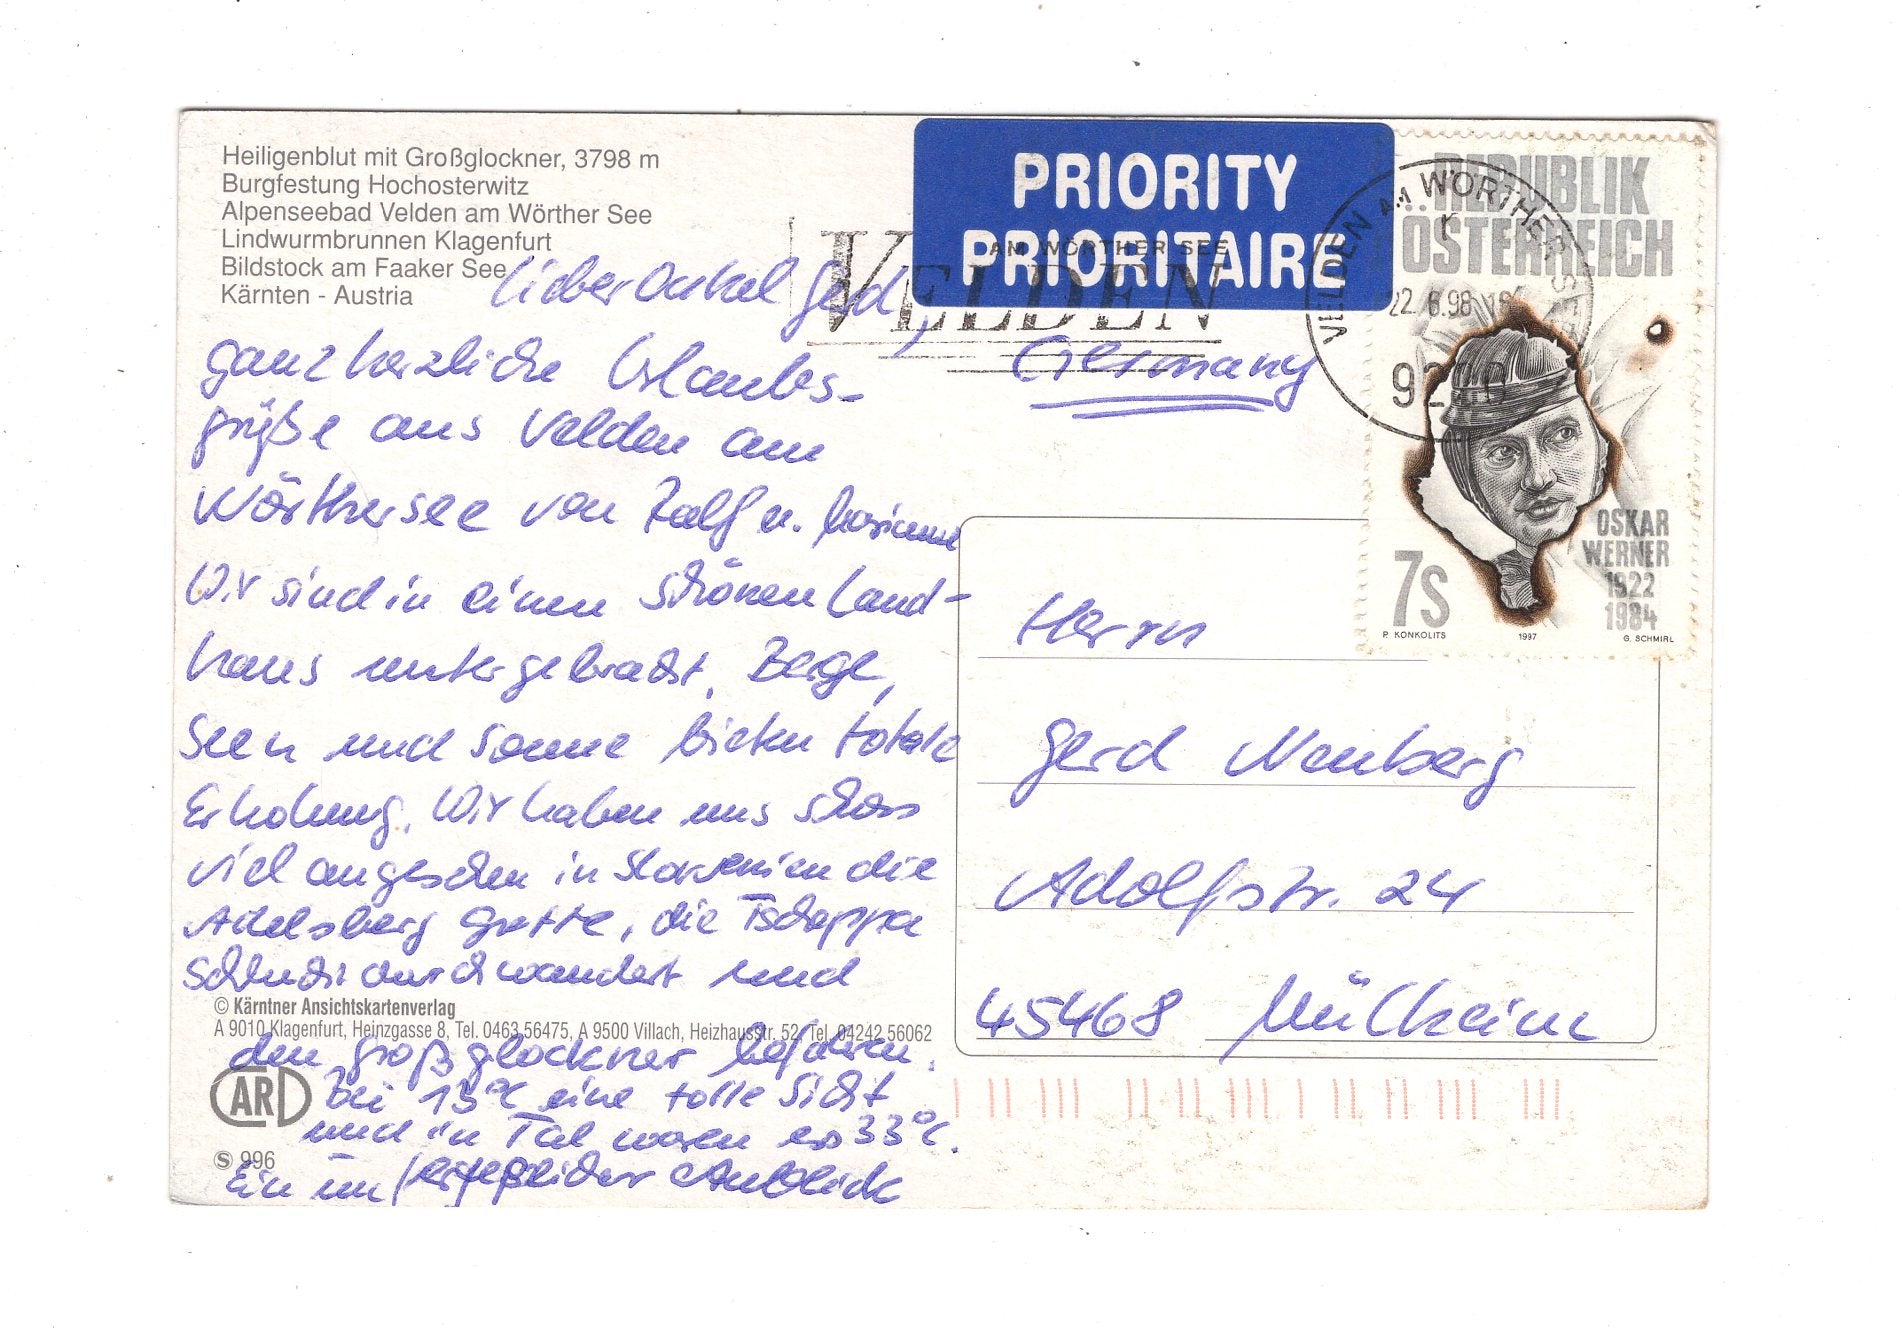 Heiligenblut mit Großglockner, 3798 m
Burgfestung Hochosterwitz
Alpenseebad Velden am Wörther See
Lindwurmbrunnen Klagenfurt
Bildstock am Faaker See
Kärnten - Austria
Lieber Onkel Gerd,
ganz herzliche Urlaubs-
grüße aus Velden am
Wörthersee von Ralf u. Marianne
Wir sind in einem schönen Land-
haus untergebracht, Berge,
Seen und Sonne bieten totale
Erholung. Wir haben uns schon
viel angesehen in Slowenien die
Adelsberg Grotte, die Tscheppa
Schlucht durchwandert und
den Großglockner befahren.
Bei 13°C eine tolle Sicht
und in Tal waren es 33°C.
Ein unvergeßlicher Anblick
© Kärntner Ansichtskartenverlag
A 9010 Klagenfurt, Heinzgasse 8, Tel. 0463 56475, A 9500 Villach, Heizhausstr. 52, Tel. 04242 56062
ARD
S 996
PRIORITY
PRIORITAIRE
AM WÖRTHER SEE
VELDEN
Germany
VELDEN AM WÖRTHER SEE
22.6.98
9220
REPUBLIK
ÖSTERREICH
OSKAR
WERNER
1922
1984
7S
P. KONKOLITS 1997 G. SCHMIRL
Herrn
Gerd Neuberg
Adolfstr. 24
45468 Mülheim